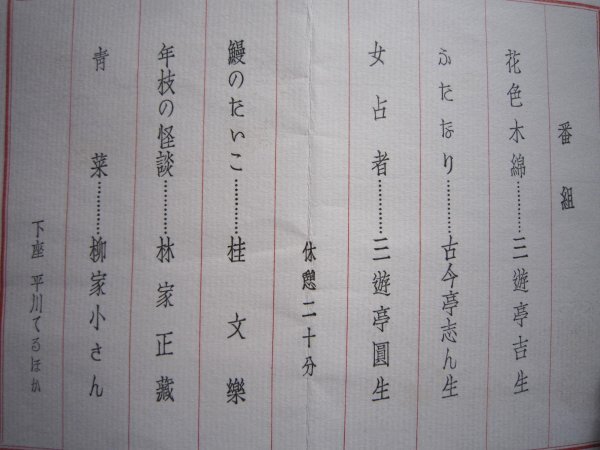 番組
花色木綿…………三遊亭吉生
ふたなり…………古今亭志ん生
女占者…………三遊亭圓生
休憩二十分
鰻のたいこ…………桂文樂
年枝の怪談…………林家正藏
青菜…………柳家小さん
下座 平川てるほか